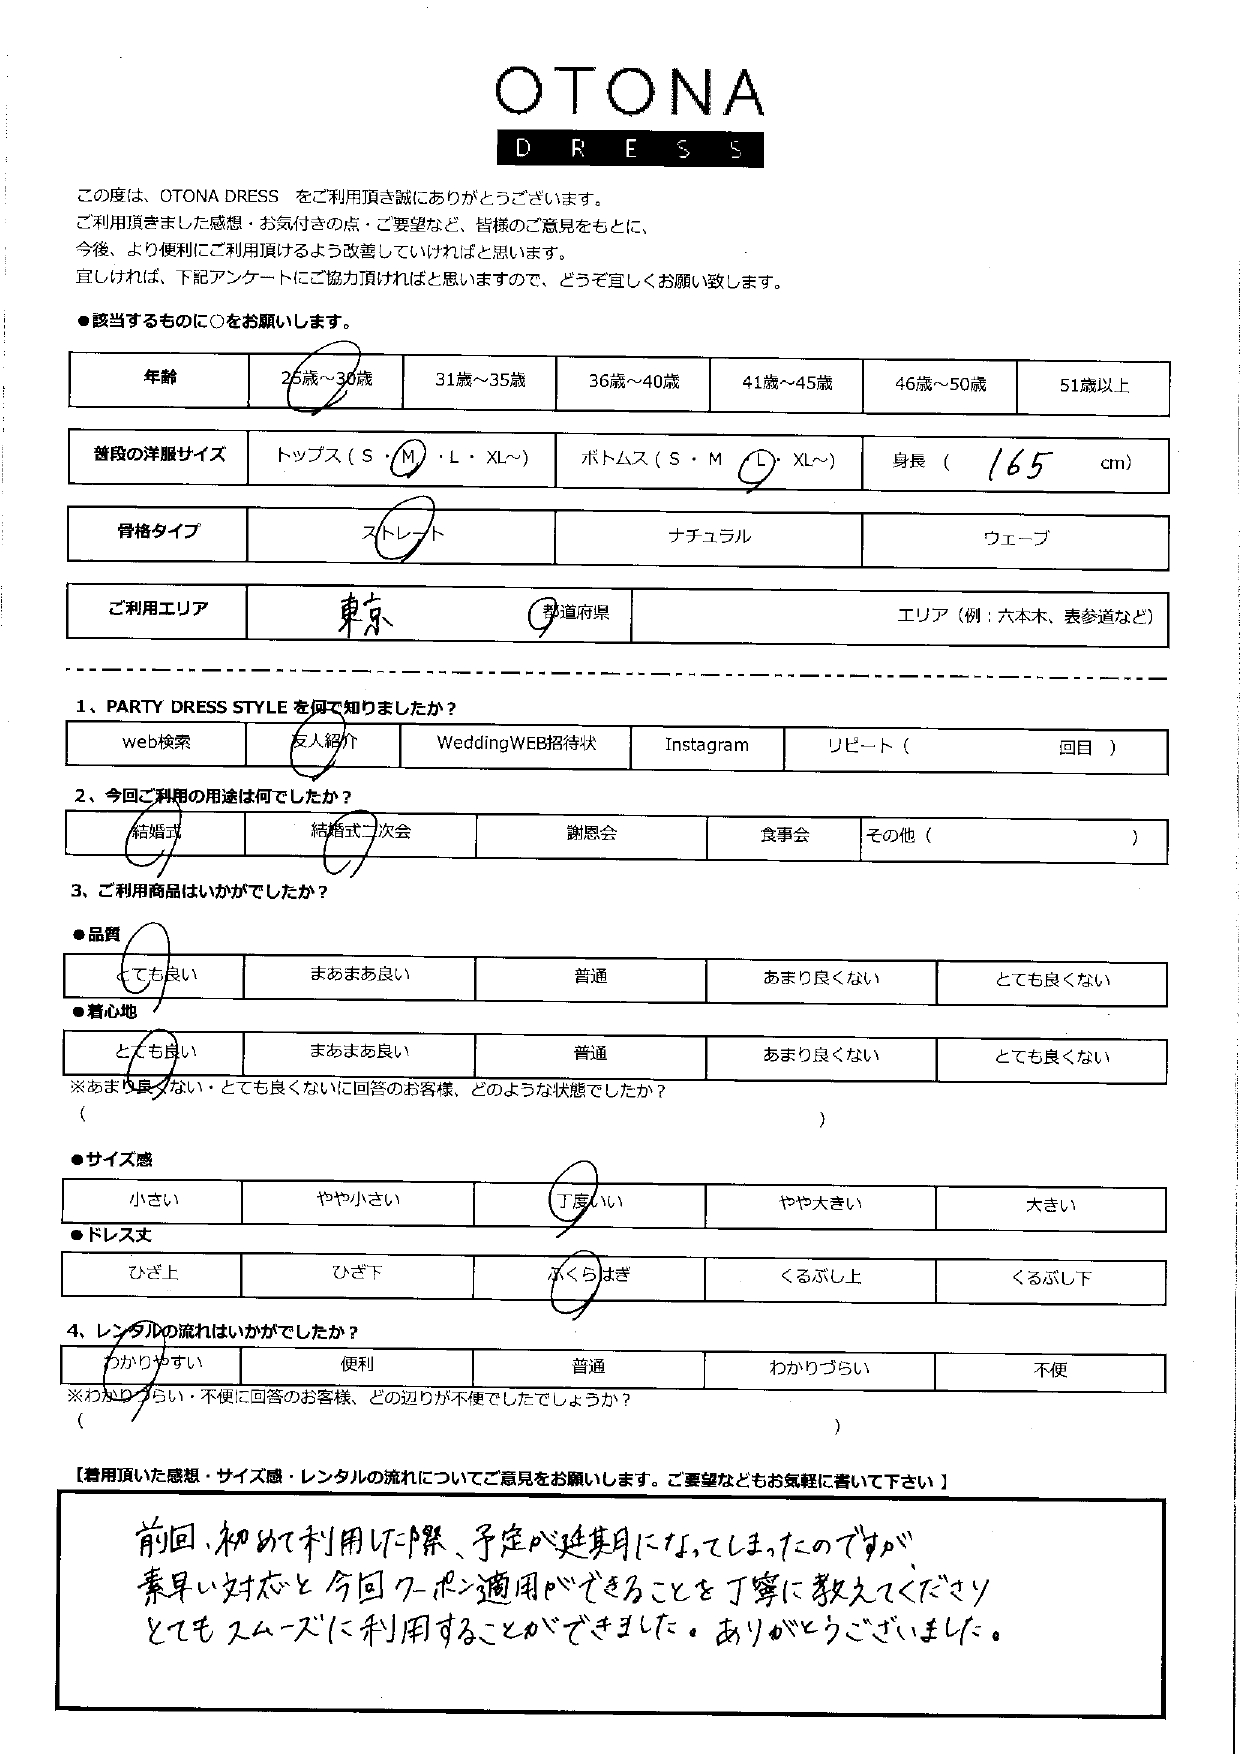 OTONA
DRESS
この度は、OTONA DRESS をご利用頂き誠にありがとうございます。
ご利用頂きました感想・お気付きの点・ご要望など、皆様のご意見をもとに、
今後、より便利にご利用頂けるよう改善していければと思います。
宜しければ、下記アンケートにご協力頂ければと思いますので、どうぞ宜しくお願い致します。
●該当するものに○をお願いします。
年齢 25歳～30歳 31歳～35歳 36歳～40歳 41歳～45歳 46歳～50歳 51歳以上
普段の洋服サイズ トップス（ S ・ M ・ L ・ XL～） ボトムス（ S ・ M ・ L ・ XL～） 身長 （ 165 cm）
骨格タイプ ストレート ナチュラル ウェーブ
ご利用エリア 東京 都道府県 エリア（例：六本木、表参道など）
1、PARTY DRESS STYLE を何で知りましたか？
web検索 友人紹介 WeddingWEB招待状 Instagram リピート（ 回目 ）
2、今回ご利用の用途は何でしたか？
結婚式 結婚式二次会 謝恩会 食事会 その他（ ）
3、ご利用商品はいかがでしたか？
●品質
とても良い まあまあ良い 普通 あまり良くない とても良くない
●着心地
とても良い まあまあ良い 普通 あまり良くない とても良くない
※あまり良くない・とても良くないに回答のお客様、どのような状態でしたか？
（ ）
●サイズ感
小さい やや小さい 丁度いい やや大きい 大きい
●ドレス丈
ひざ上 ひざ下 ふくらはぎ くるぶし上 くるぶし下
4、レンタルの流れはいかがでしたか？
わかりやすい 便利 普通 わかりづらい 不便
※わかりづらい・不便に回答のお客様、どの辺りが不便でしたでしょうか？
（ ）
【着用頂いた感想・サイズ感・レンタルの流れについてご意見をお願いします。ご要望などもお気軽に書いて下さい 】
前回、初めて利用した際、予定が延期になってしまったのですが、
素早い対応と今回クーポン適用ができることを丁寧に教えてくださり
とてもスムーズに利用することができました。ありがとうございました。